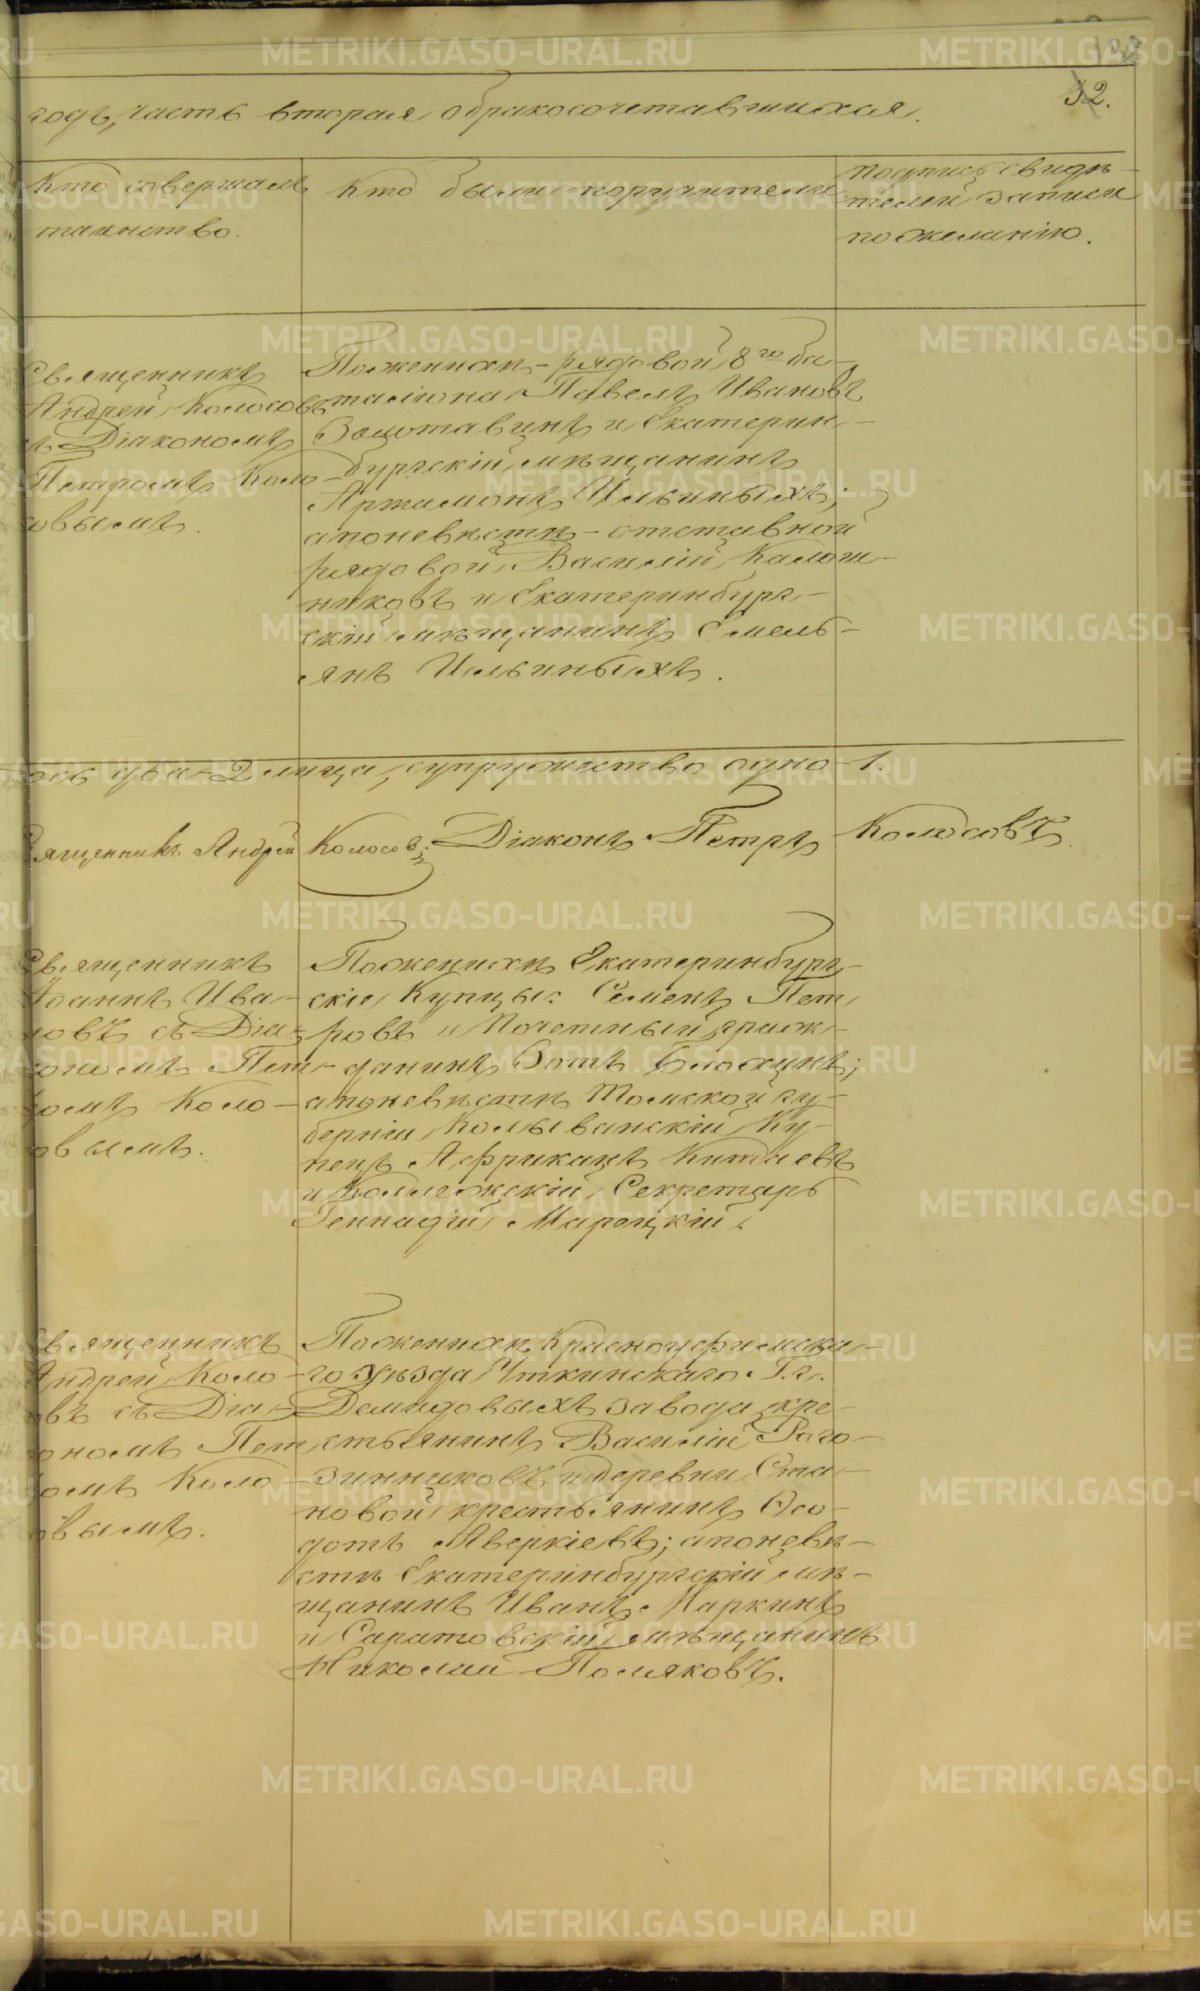 32.
годъ, часть вторая о бракосочетавшихся.
Кто совершалъ
таинство.
Кто были поручители
подпись свидѣ-
телей записи
по желанію.
Священникъ
Андрей Колосовъ
съ Діакономъ
Петромъ Коло-
совымъ.
По женихѣ - рядовой 8го ба-
таліона Павелъ Ивановъ
и Екатерин-
бургскій мѣщанинъ
Артамонъ Ильиныхъ;
а по невѣстѣ - отставной
рядовой Василій Калаш-
никовъ и Екатеринбург-
скій мѣщанинъ Емель-
янъ Ильиныхъ.
два - 2 лица, супружество одно 1.
Священникъ Андрей Колосовъ. Діаконъ Петръ Колосовъ.
Священникъ
Іоаннъ Ива-
новъ съ Діа-
кономъ Пет-
ромъ Коло-
совымъ.
По женихѣ Екатеринбург-
скіе Купцы: Семенъ Пет
ровъ и Почетный граж-
данинъ Зотъ Блохинъ;
а по невѣстѣ Томской гу-
берніи Колыванскій Ку-
пецъ Африканъ Китаевъ
и Коллежскій Секретарь
Геннадій Марецкій.
Священникъ
Андрей Коло-
совъ съ Діа-
кономъ Пет
ромъ Коло-
совымъ.
По женихѣ Красноуфимска-
го уѣзда Уткинскаго Г.г.
Демидовыхъ завода кре-
стьянинъ Василій Рого-
зинниковъ и деревни Ста-
новой крестьянинъ Ѳео-
дотъ Аверкіевъ; а по невѣ-
стѣ Екатеринбургскій мѣ-
щанинъ Иванъ Маркинъ
и Саратовскій мѣщанинъ
Николай Поляковъ.
METRIKI.GASO-URAL.RU